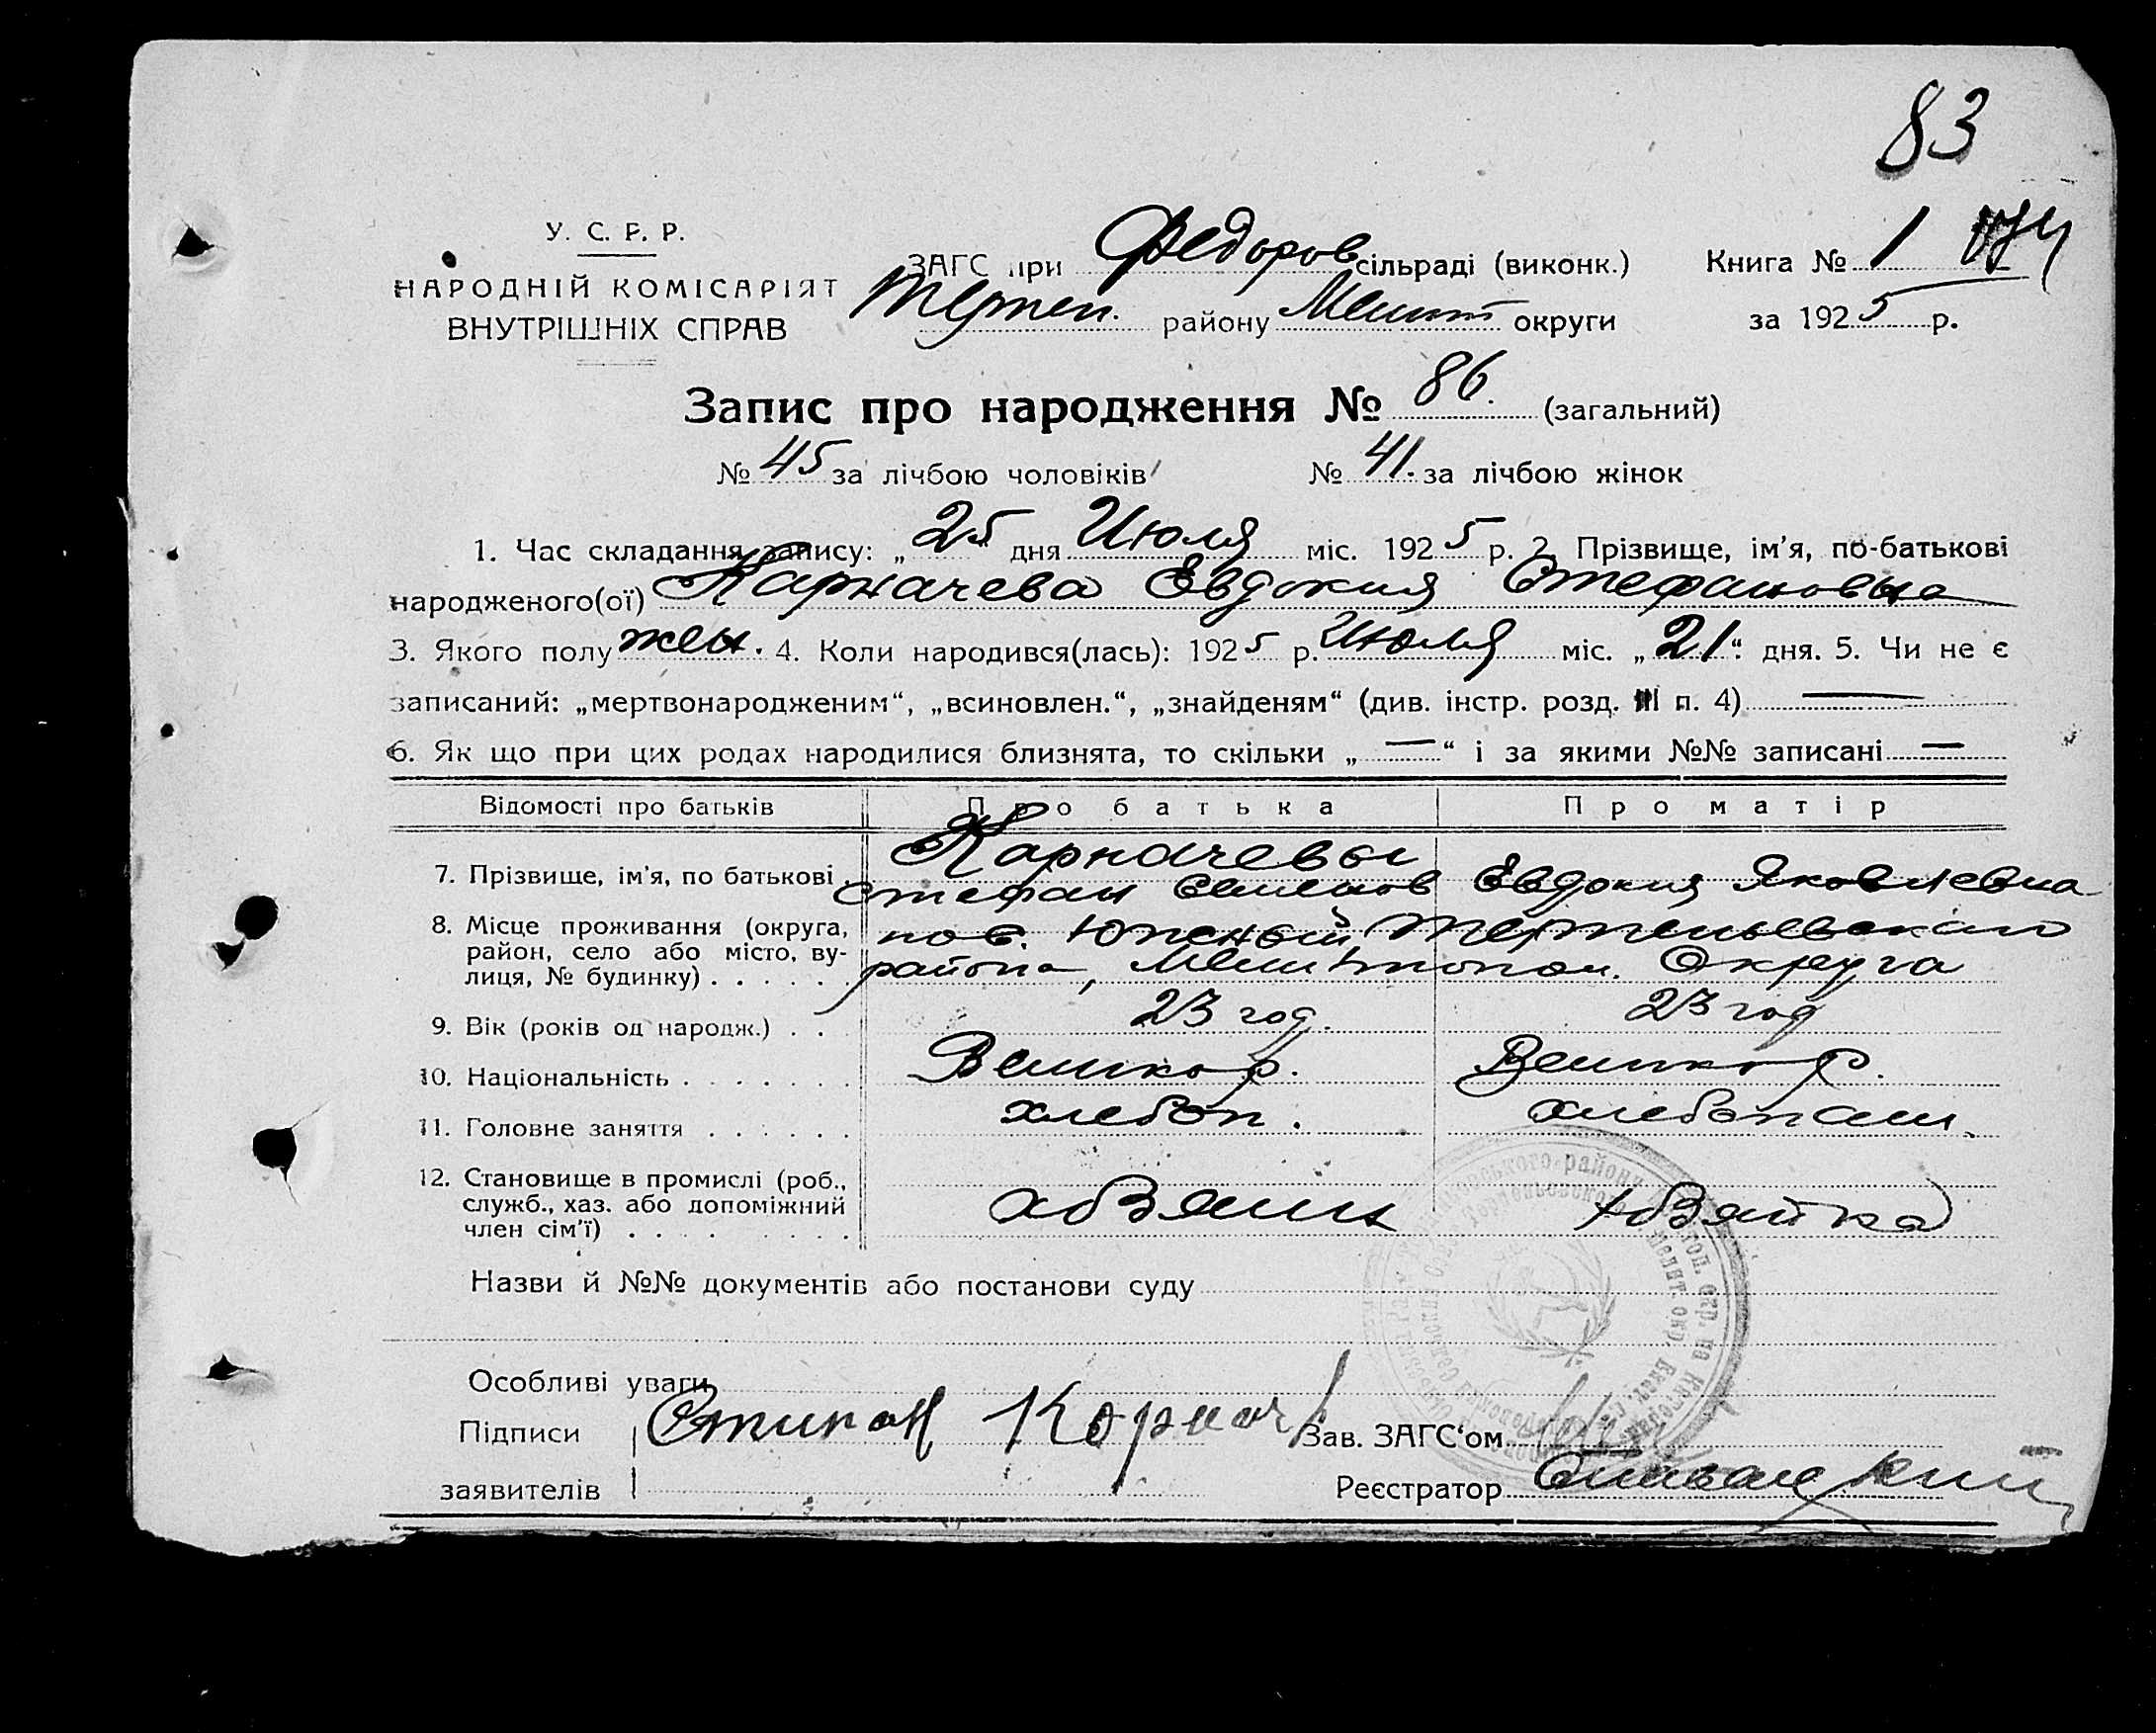 83
У. С. Р. Р.
НАРОДНІЙ КОМІСАРІЯТ
ВНУТРІШНІХ СПРАВ
ЗАГС при Федоров сільраді (виконк.) Книга № 1
Терпен. району Мелит округи за 1925 р.
Запис про народження № 86. (загальний)
№ 45 за лічбою чоловіків № 41. за лічбою жінок
1. Час складання запису: „25“ дня Июля міс. 1925 р. 2. Прізвище, ім'я, по-батькові
народженого(ої) Карначева Евдокия Стефановна
3. Якого полу жен. 4. Коли народився(лась): 1925 р. Июля міс. „21“ дня. 5. Чи не є
записаний: „мертвонародженим“, „всиновлен.“, „знайденям“ (див. інстр. розд. III п. 4) —
6. Як що при цих родах народилися близнята, то скільки „—“ і за якими №№ записані —
Відомості про батьків Про батька Про матір
Карначевы
7. Прізвище, ім'я, по батькові . Стефан Семенов Евдокия Яковлевна
8. Місце проживання (округа, район, село або місто, вулиця, № будинку) . . . . . .
пос. Юженый, Терпеньевскаго
района, Мелитопол. Округа
9. Вік (років од народж.) . . . 23 год. 23 год
10. Національність . . . . . . . Великор. Великор.
11. Головне заняття . . . . . . хлебоп. хлебопаш.
12. Становище в промислі (роб., служб., хаз. або допоміжний член сім'ї) . . . .
хозяин хозяйка
Назви й №№ документів або постанови суду
Особливі уваги
Підписи Стипан Корнач Зав. ЗАГС‘ом
заявителів Реєстратор